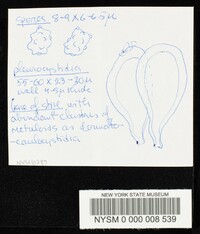 spores 8-9 x 6-6.5 µ
pleurocystidia
55-60 x 23-30 µ
wall 4-5 µ thick
base of stipe with
abundant clusters of
metuloids as dermato-
caulocystidia
NEW YORK STATE MUSEUM
NYSM 0 000 008 539